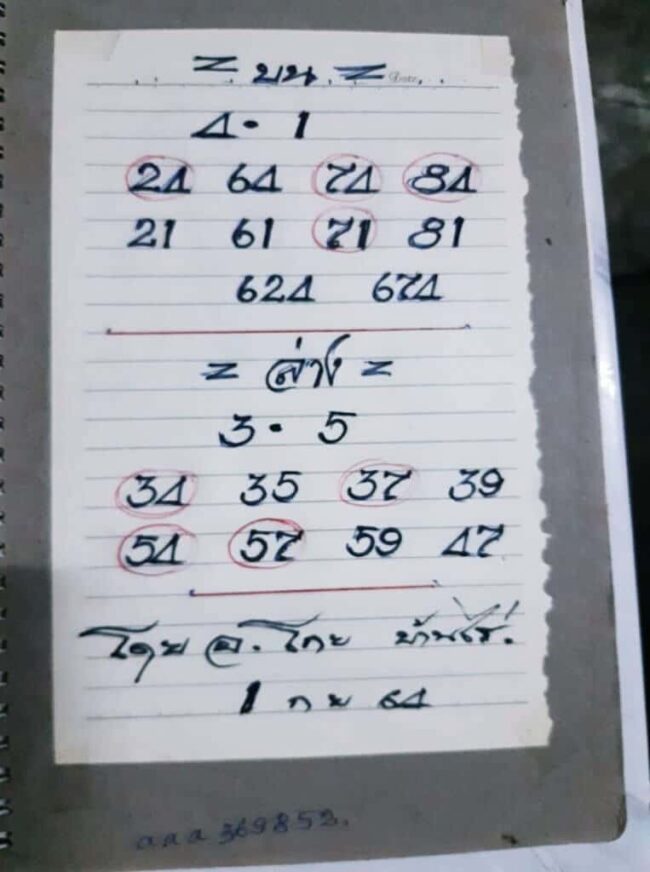 = บน =
4 • 1
24 64 74 84
21 61 71 81
624 674
= ล่าง =
3 • 5
34 35 37 39
54 57 59 47
โดย อ. โกย บ้านไร่.
1 กย 64
aaa 369852.